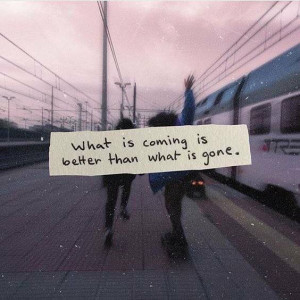 What is coming is
better than what is gone.